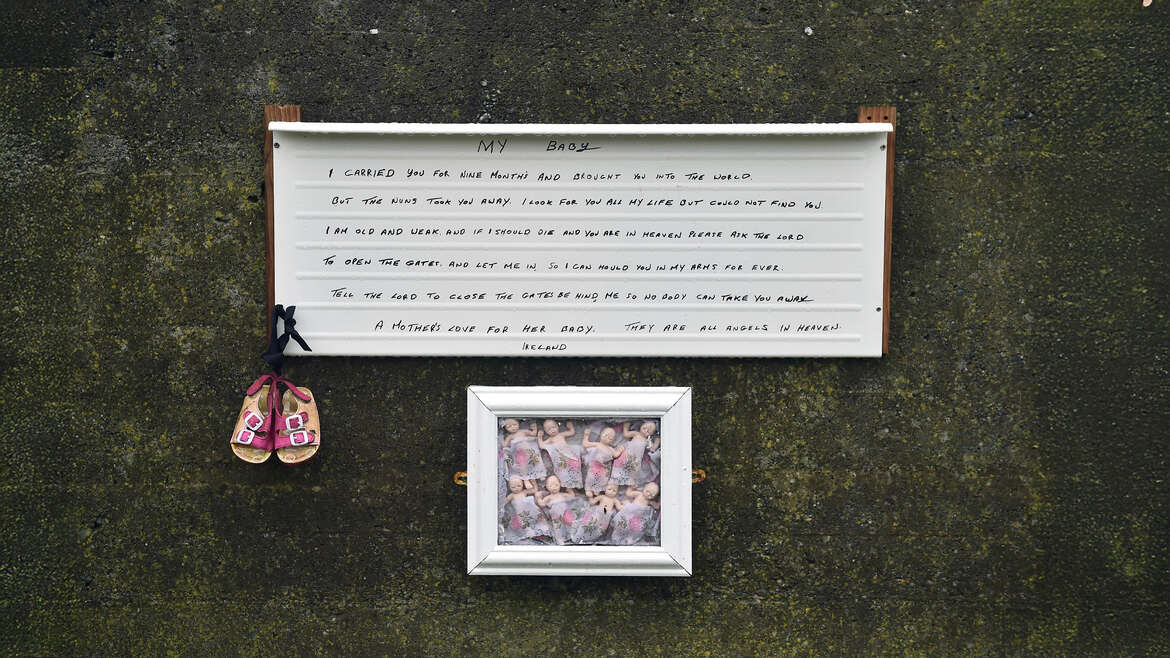 MY BABY
I CARRIED YOU FOR NINE MONTH'S AND BROUGHT YOU INTO THE WORLD.
BUT THE NUNS TOOK YOU AWAY. I LOOK FOR YOU ALL MY LIFE BUT COULD NOT FIND YOU
I AM OLD AND WEAK. AND IF I SHOULD DIE AND YOU ARE IN HEAVEN PLEASE ASK THE LORD
TO OPEN THE GATES. AND LET ME IN. SO I CAN HOULD YOU IN MY ARMS FOR EVER.
TELL THE LORD TO CLOSE THE GATES BE HIND ME SO NO BODY CAN TAKE YOU AWAY
A MOTHER'S LOVE FOR HER BABY. THEY ARE ALL ANGELS IN HEAVEN.
IRELAND